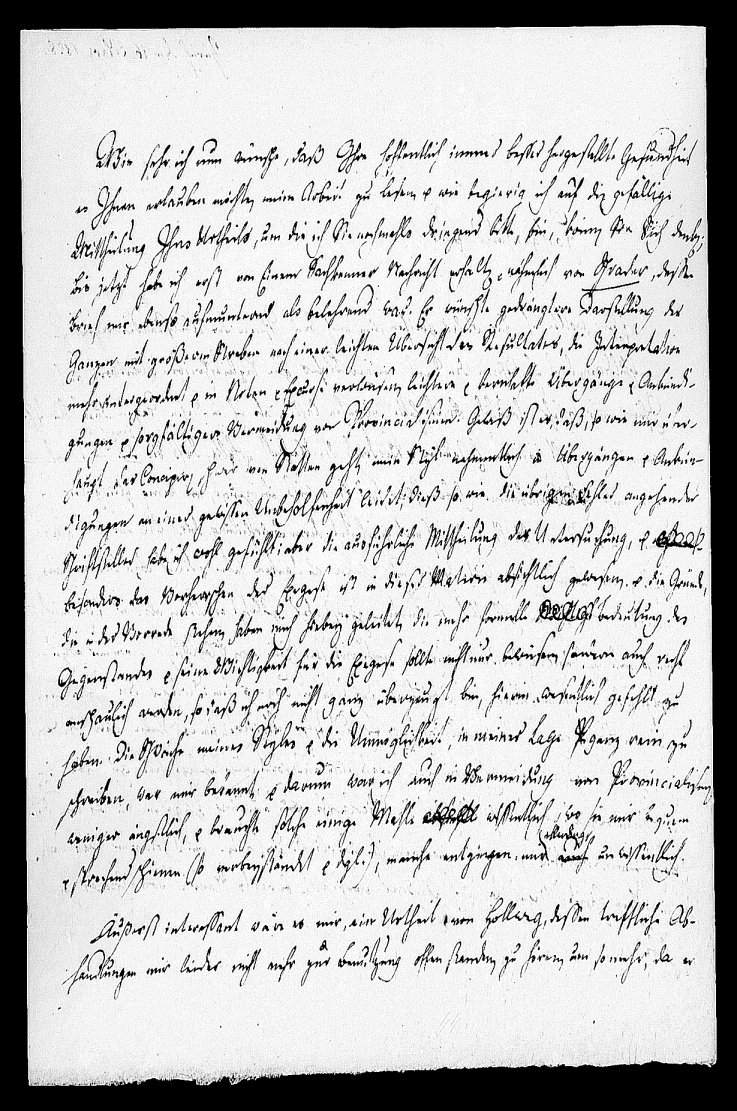 Wie sehr ich nun wünsche, daß Ihre hoffentlich immer besser hergestellte Gesundheit
es Ihnen erlauben möchte, meine Arbeit zu lesen & wie begierig ich auf die gefällige
Mittheilung Ihres Urtheils, um die ich Sie nochmahls dringend bitte, bin, können Sie Sich denken;
bis jetzt habe ich erst von Einem Sachkenner Nachricht erhalten, nähmlich von Schrader, dessen
Brief mir ebenso aufmunternd als belehrend war. Er wünschte gedrängtere Darstellung des
Ganzen mit größerem Streben nach einer leichten Übersicht des Resultates, die Interpretation
mehr untergeordnet & in Noten & Excurse verwiesen, leichtere & Übergänge & Ankündi-
gungen & sorgfältigere Vermeidung von Provincialismen. Gewiß ist es, daß, so wie mir über-
haupt das Concipieren schwer von Statten geht, mein Styl nahmentlich in Übergängen & Ankün-
digungen an einer gewissen Unbeholfenheit leidet; dieß so wie die übrigen Fehler angehender
Schriftsteller habe ich wohl gefühlt; aber die ausführliche Mittheilung der Untersuchung, &
besonders das Vorherrschen der Exegese ist in dieser Materie absichtlich gewesen, & die Gründe,
die in der Vorrede stehen, haben mich hiebey geleitet, die mehr formelle Bedeutung des
Gegenstandes & seine Wichtigkeit für die Exegese sollte nicht nur bewiesen sondern auch recht
anschaulich werden, so daß ich noch nicht ganz überzeugt bin, hierin wesentlich gefehlt zu
haben. Die Schwäche meines Styles & die Unmöglichkeit, in meiner Lage ganz rein zu
schreiben, war mir bekannt & darum war ich auch in Vermeidung von Provincialismen
weniger ängstlich, & brauchte solche einige Mahle wissentlich, wo sie mir bequem
& sprechend schienen (so verbeyständet & dgl.), manche entgingen mir allerdings unwissentlich.
Äußerst interessant wäre es mir, ein Urtheil von Hollweg, dessen treffliche Ab-
handlungen mir leider nicht mehr zur Benutzung offen standen, zu hören, um so mehr, da er